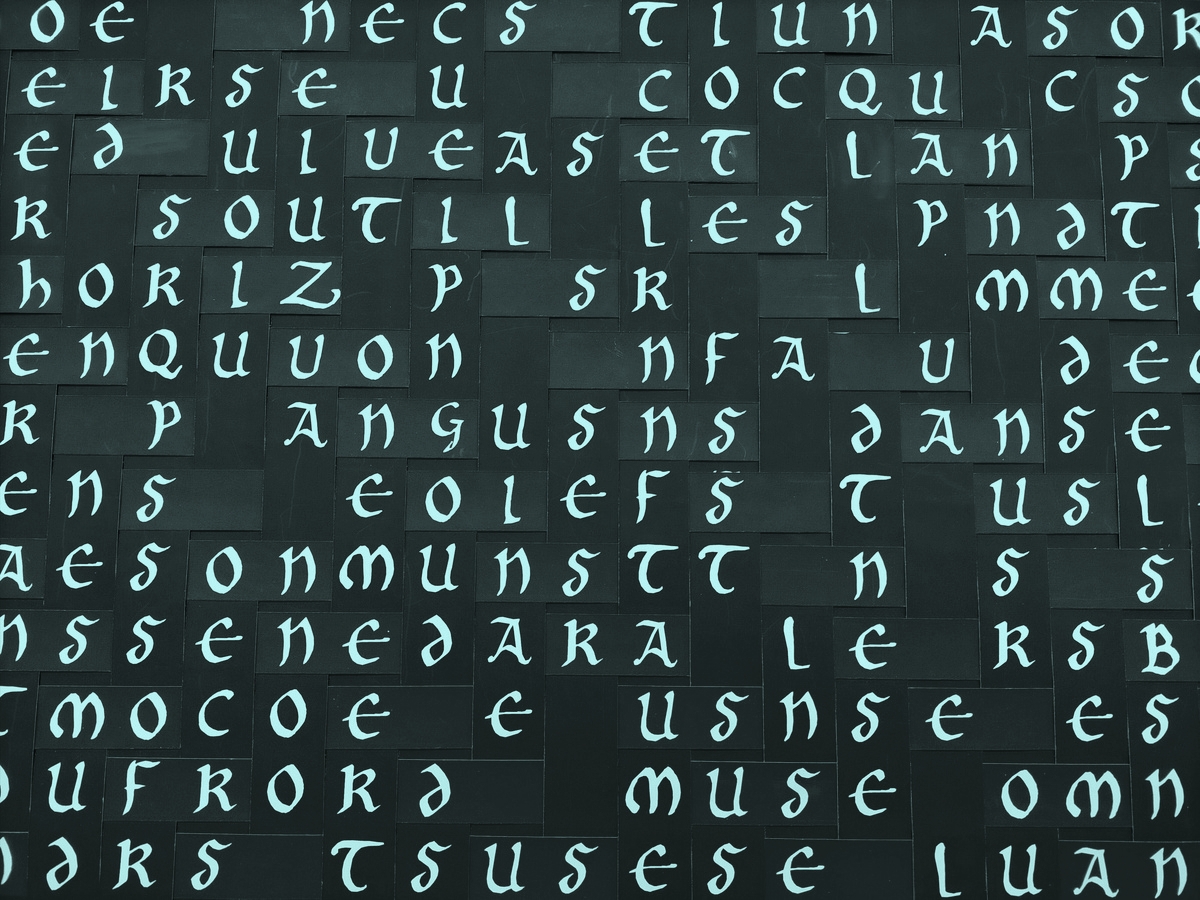 O E N E C S T I U N A S O R
E I R S E U C O C Q U C S O
E D U I U E A S E T L A N P S
R S O U T I L L E S P N D T
h O R I Z P S R L M M E E
E N Q U U O N N F A U D E C
R P A N G U S N S D A N S E
E N S E O I E F S T U S L
A E S O N M U N S T T N S S
N S S E N E D A R A L E R S B
T M O C O E E U S N S E E S
U F R O R D M U S E O M N
D R S T S U S E S E L U A N